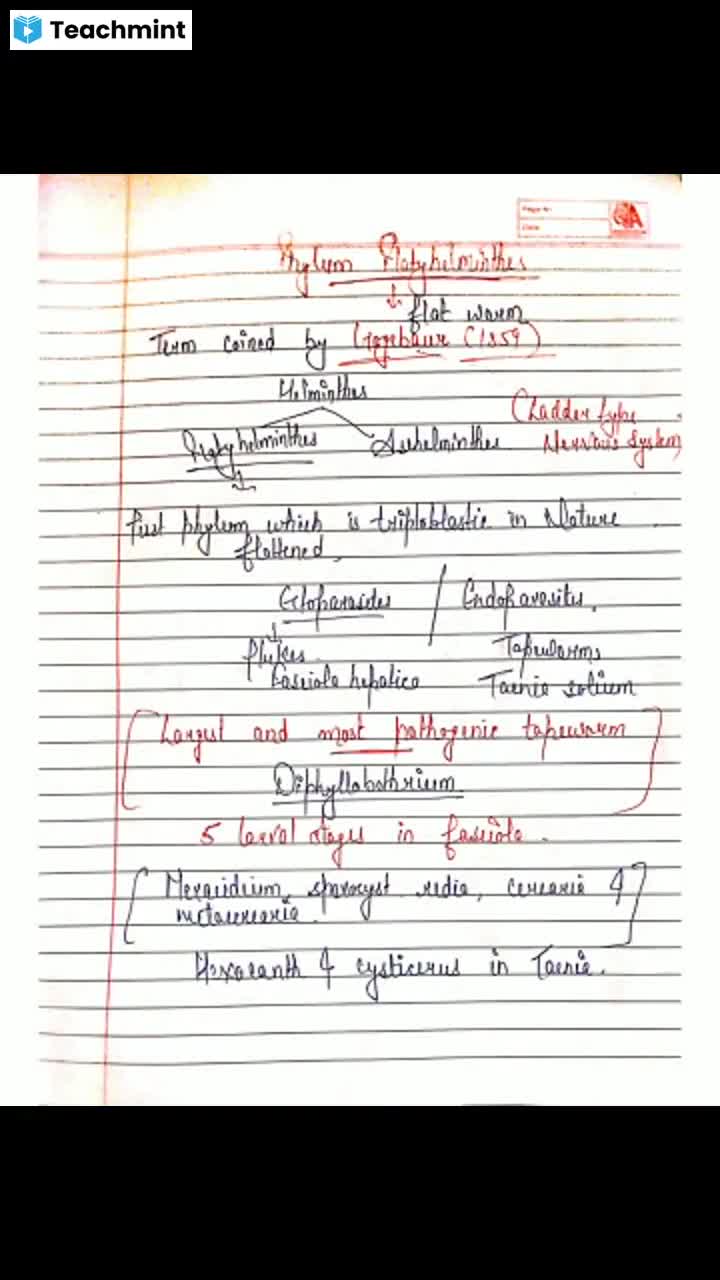 Teachmint
Phylum Platyhelminthes
flat worm
Term coined by Gogebaur (1859)
Helminthes
(Ladder type
Nervous System)
Platyhelminthes Aschelminthes
First phylum which is triploblastic in Nature
flattened.
Ectoparasites / Endoparasites.
flukes Tapeworms
Fasciola hepatica Taenia solium
Largest and most pathogenic tapeworm
Diphyllobothrium
5 larval stages in fasciola.
sporocyst redia, cercaria &
metacercaria.
Hexacanth & cysticerus in Taenia.